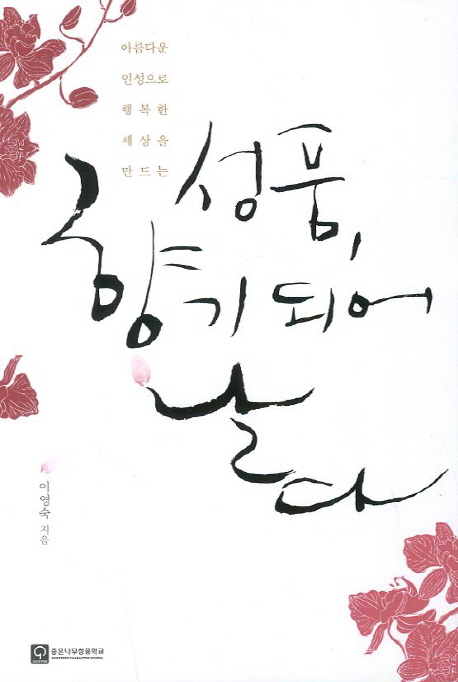 아름다운
인성으로
행복한
세상을
만드는
성품,
향기 되어
날다
이영숙 지음
좋은나무성품학교